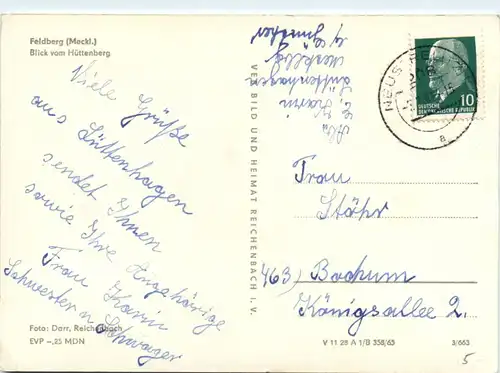 Feldberg (Meckl.)
Blick vom Hüttenberg
Viele Grüße
aus Lüttenhagen
sendet Ihnen
sowie Ihre Angehörige
Frau Karin
Schwester u. Schwager
Foto: Darr, Reichenbach
EVP –,25 MDN
VEB BILD UND HEIMAT REICHENBACH I. V.
Karin
Lüttenhagen
NEUS
a
DEUTSCHE
DEMOKRATISCHE REPUBLIK
10
Frau
Stöhr
463) Bochum
Königsallee 2.
V 11 28 A 1/B 358/65
3/663
5